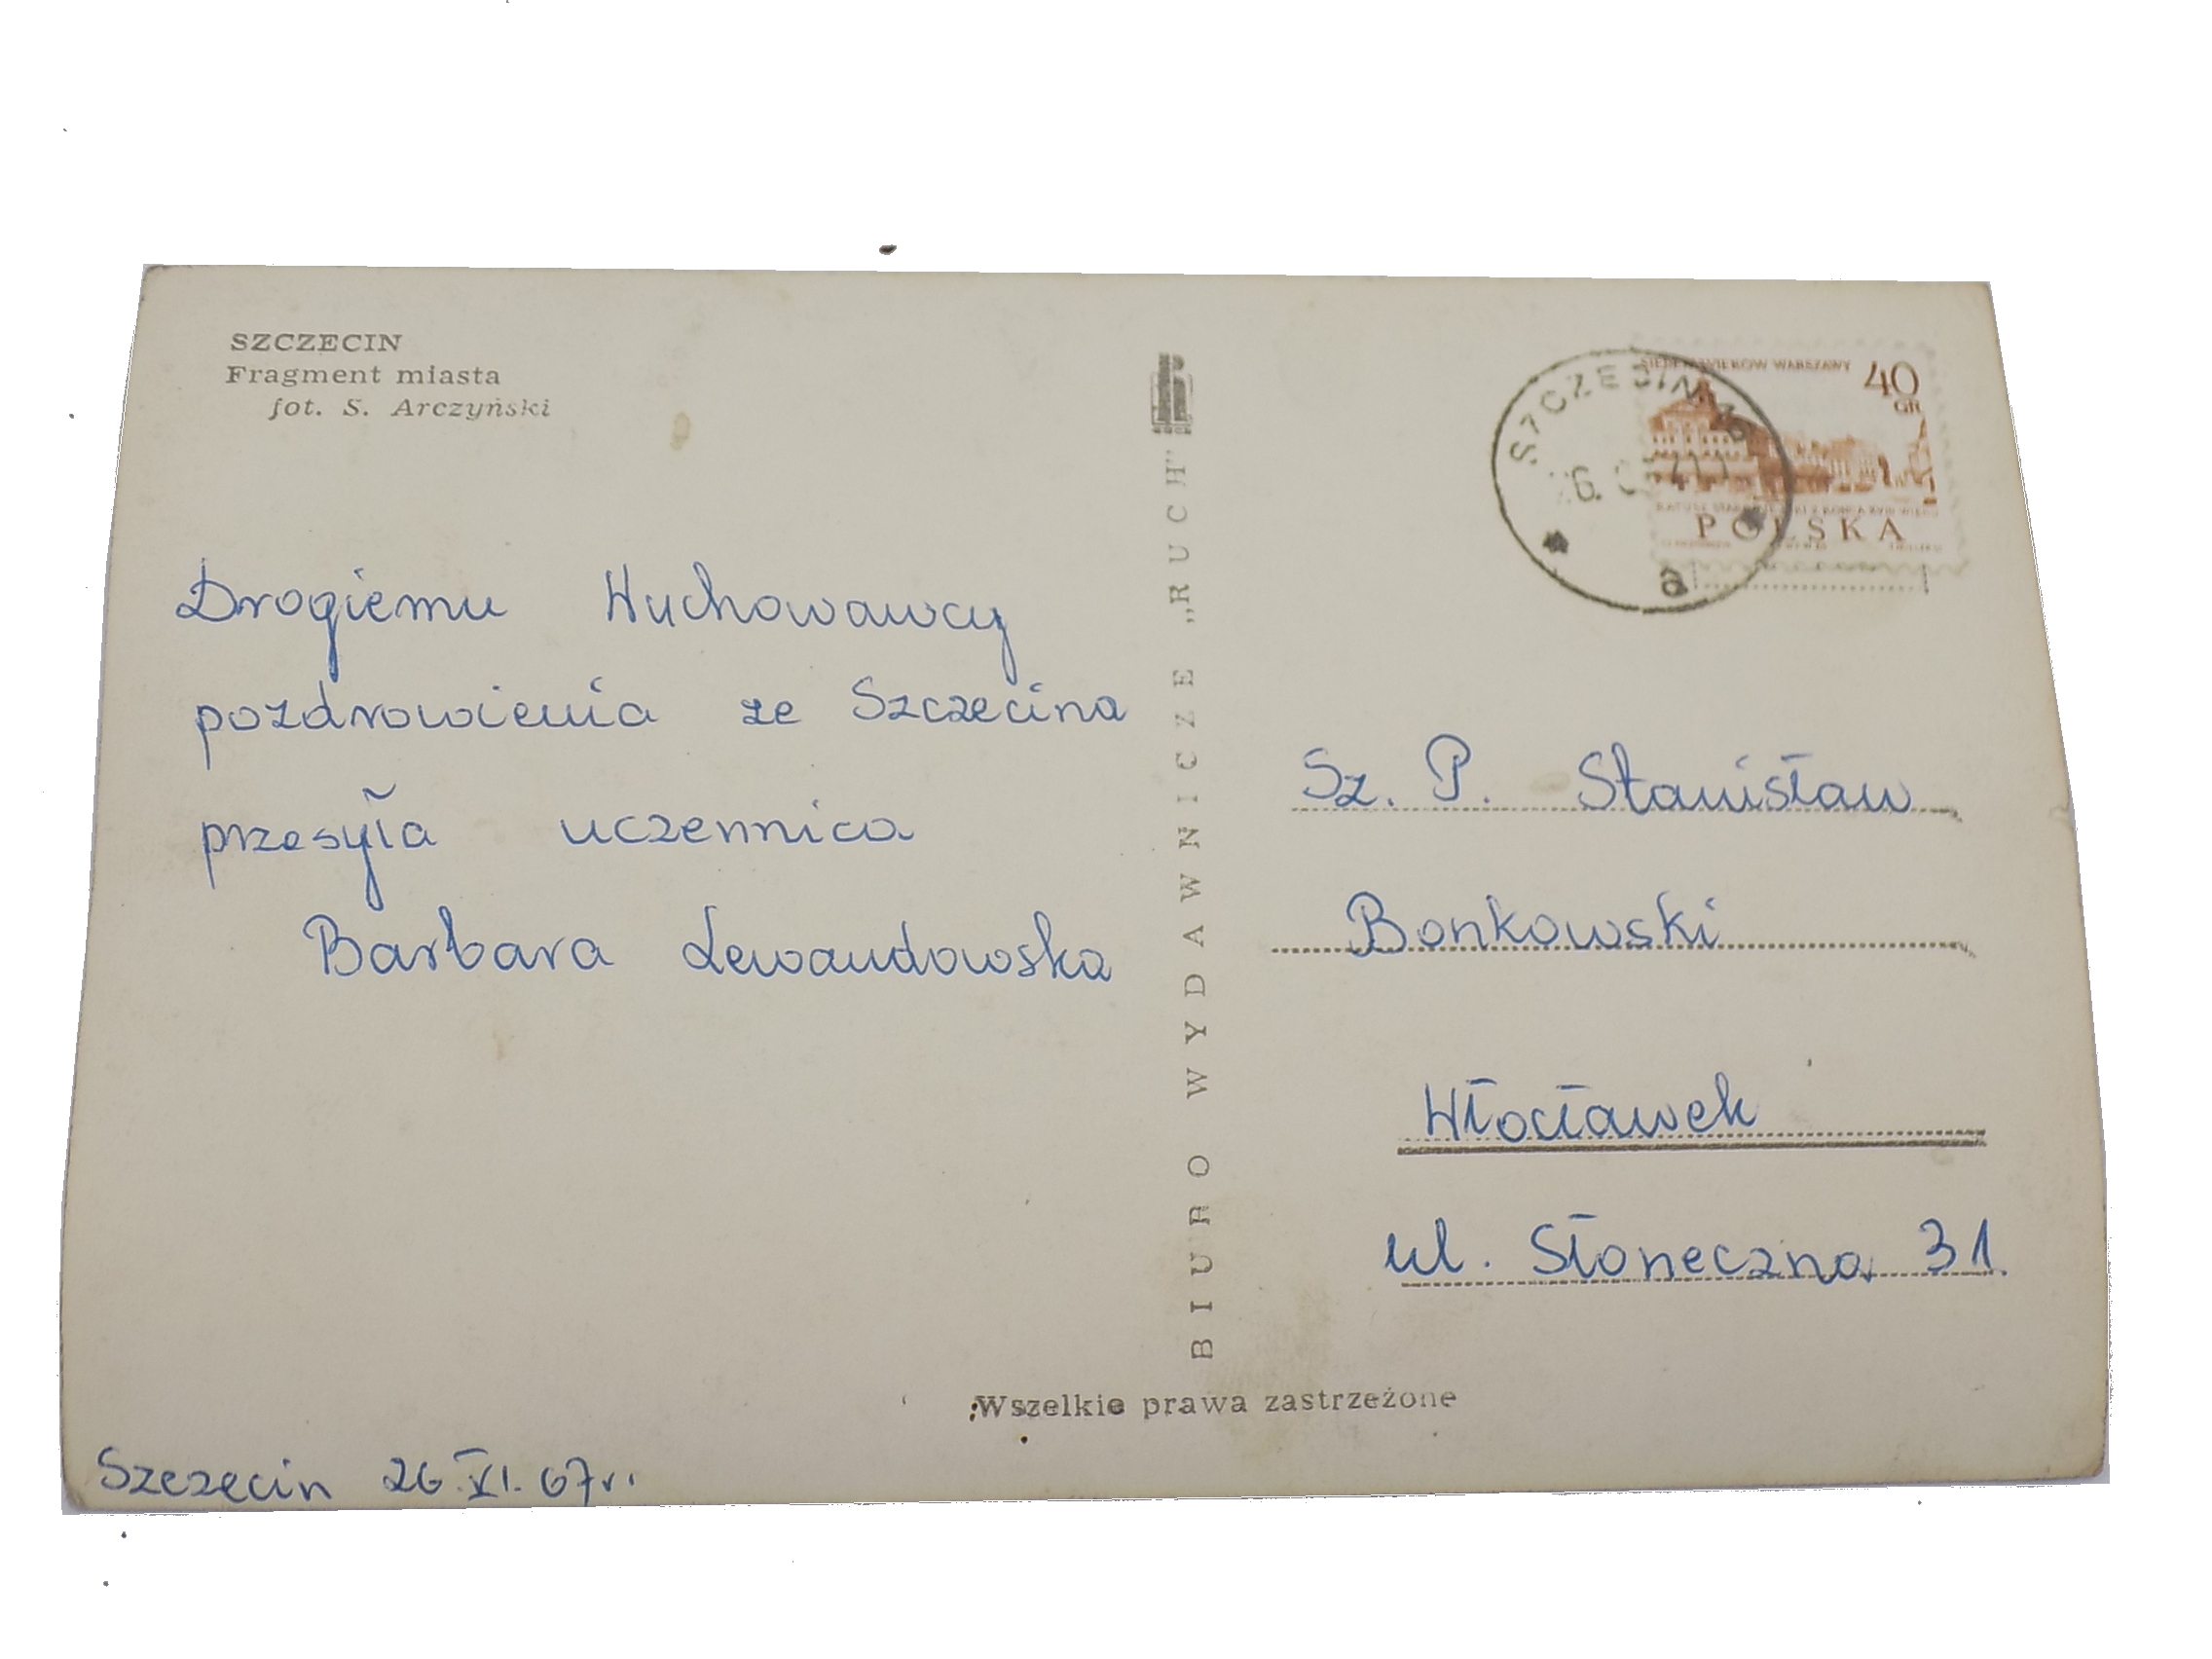 SZCZECIN
Fragment miasta
fot. S. Arczyński
Drogiemu Wychowawcy
pozdrowienia ze Szczecina
przesyła uczennica
Barbara Lewandowska
Szczecin 26.VI.67r.
BIURO WYDAWNICZE „RUCH"
Wszelkie prawa zastrzeżone
SZCZECIN
a
WIEKÓW WARSZAWY
40
GR
POLSKA
Sz. P. Stanisław
Bonkowski
Włocławek
ul. Słoneczna 31.